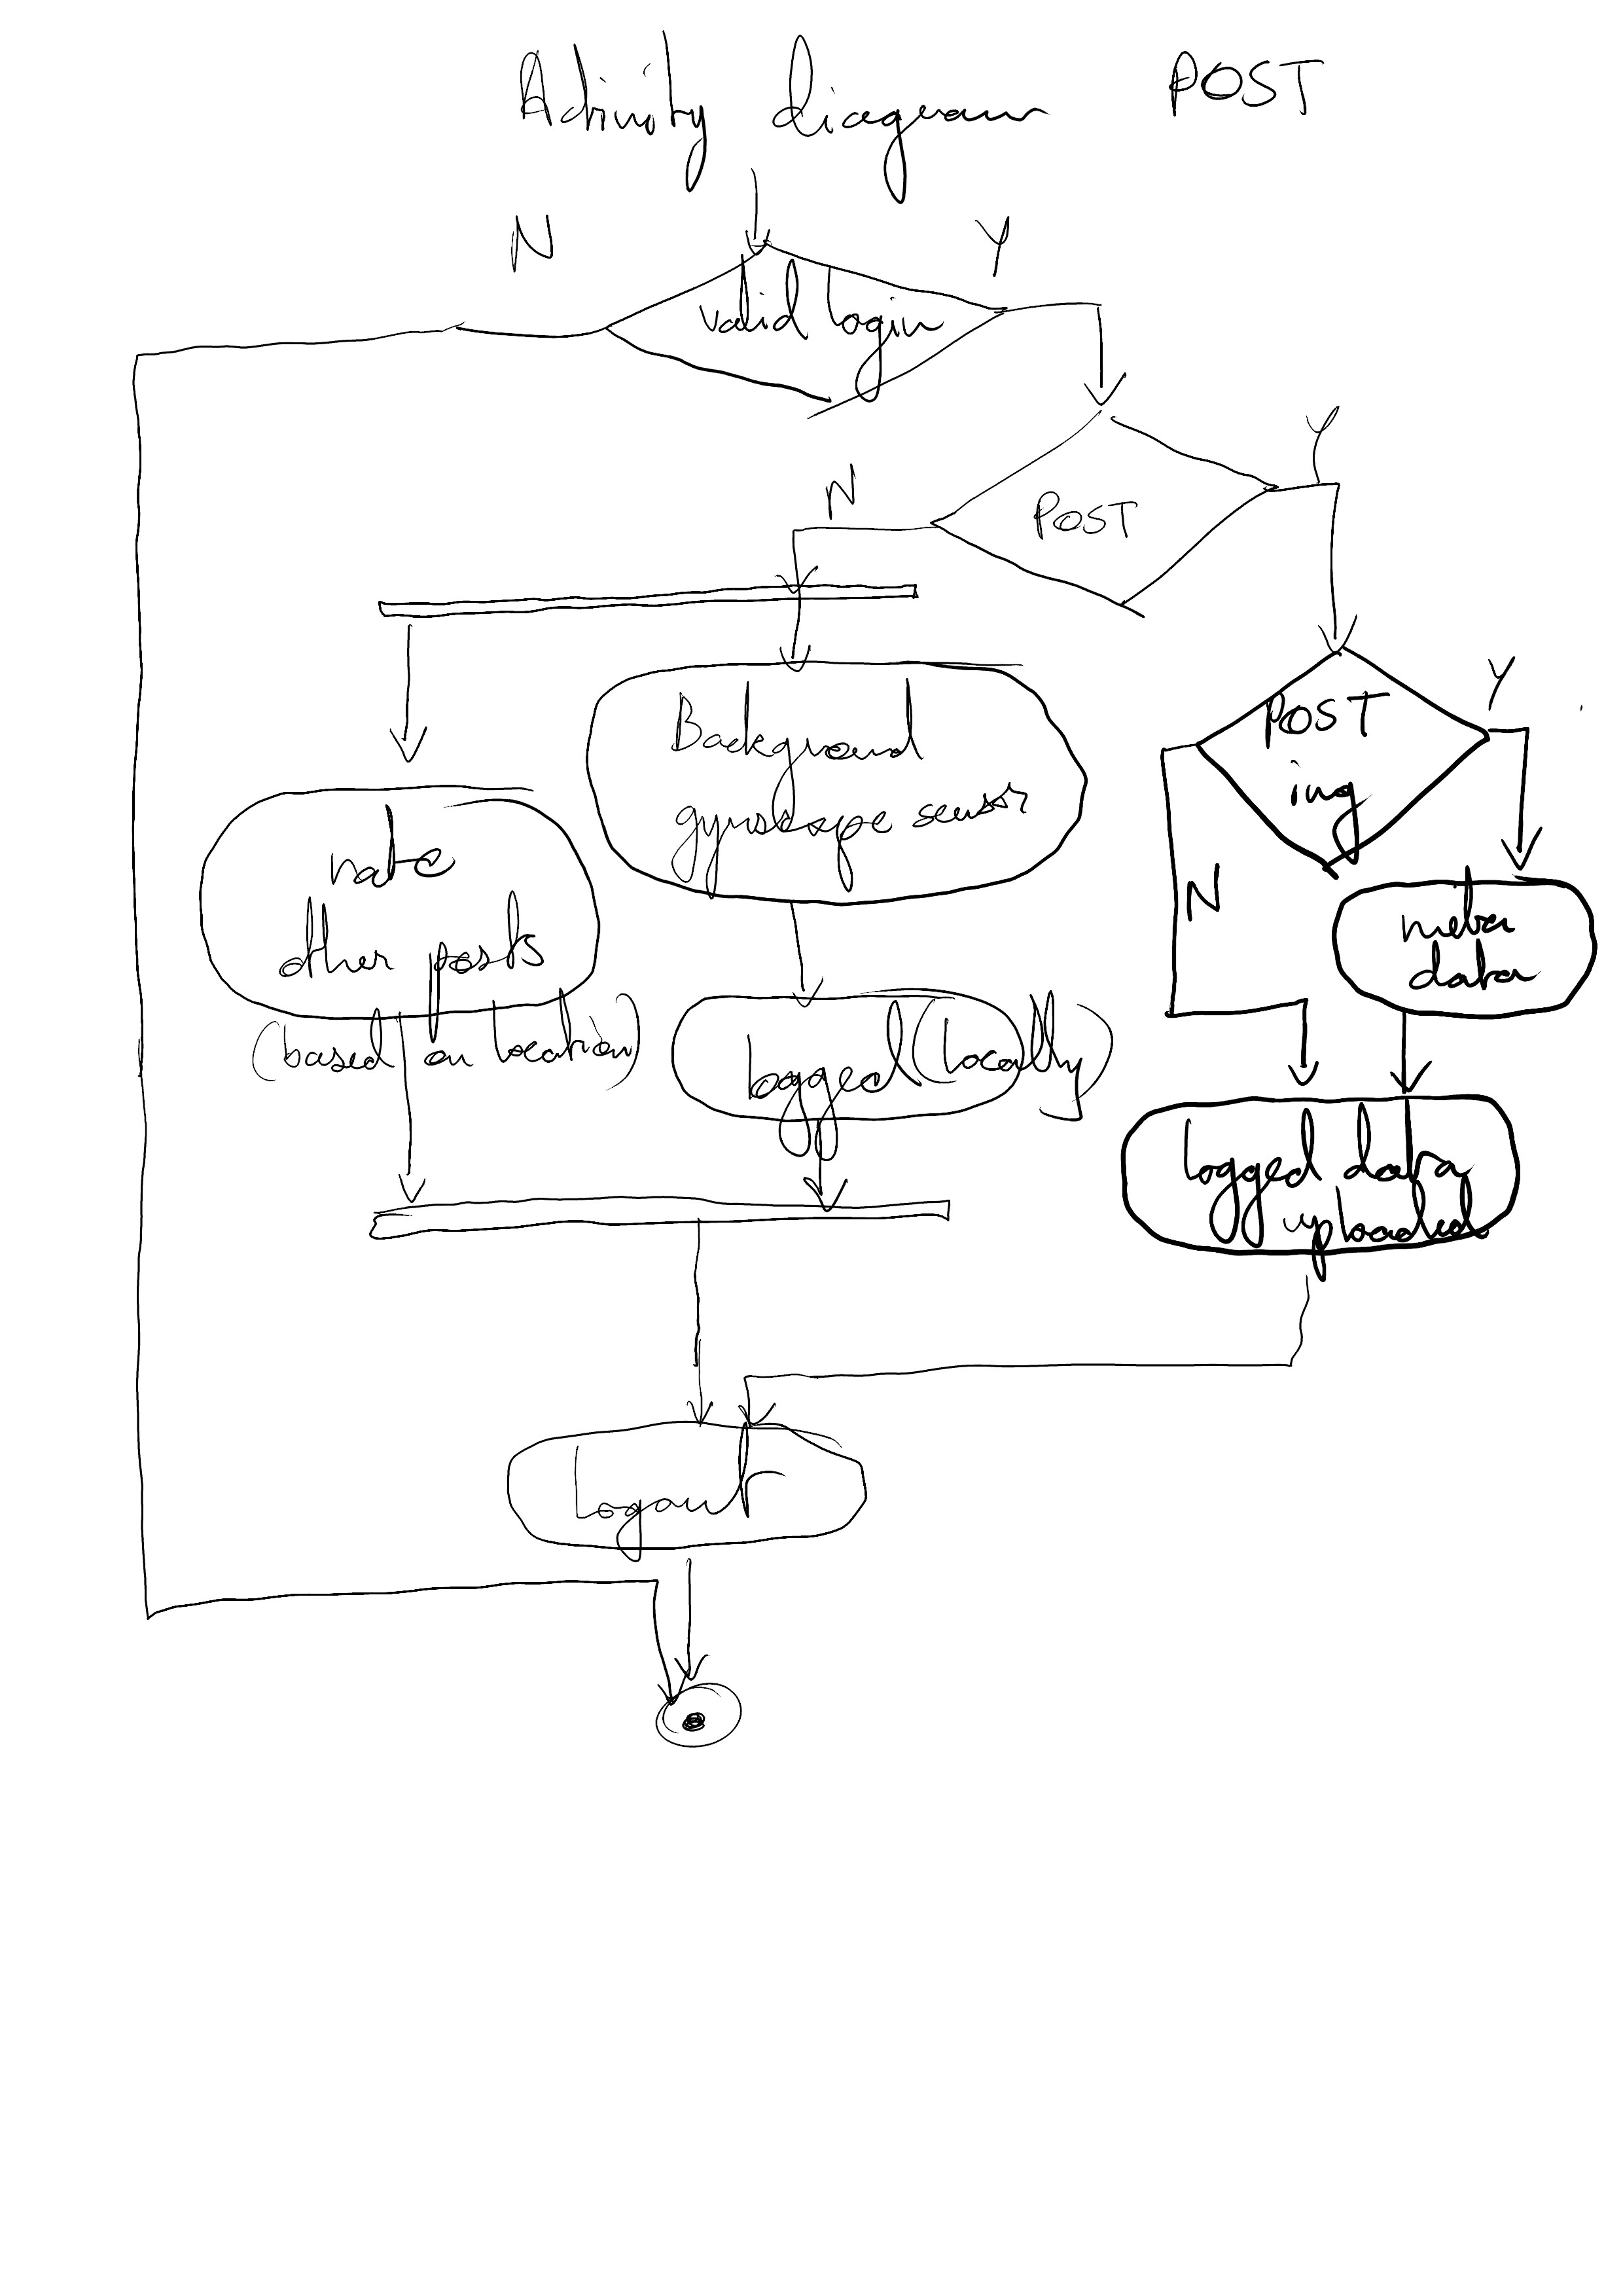 Activity diagram POST
N Y
valid login
Y
N
POST
Y
POST
ing
Background
gyroskope sensor
rate
other posts
(based on location)
N
meta
data
logged (locally)
logged data
uploaded
Logout